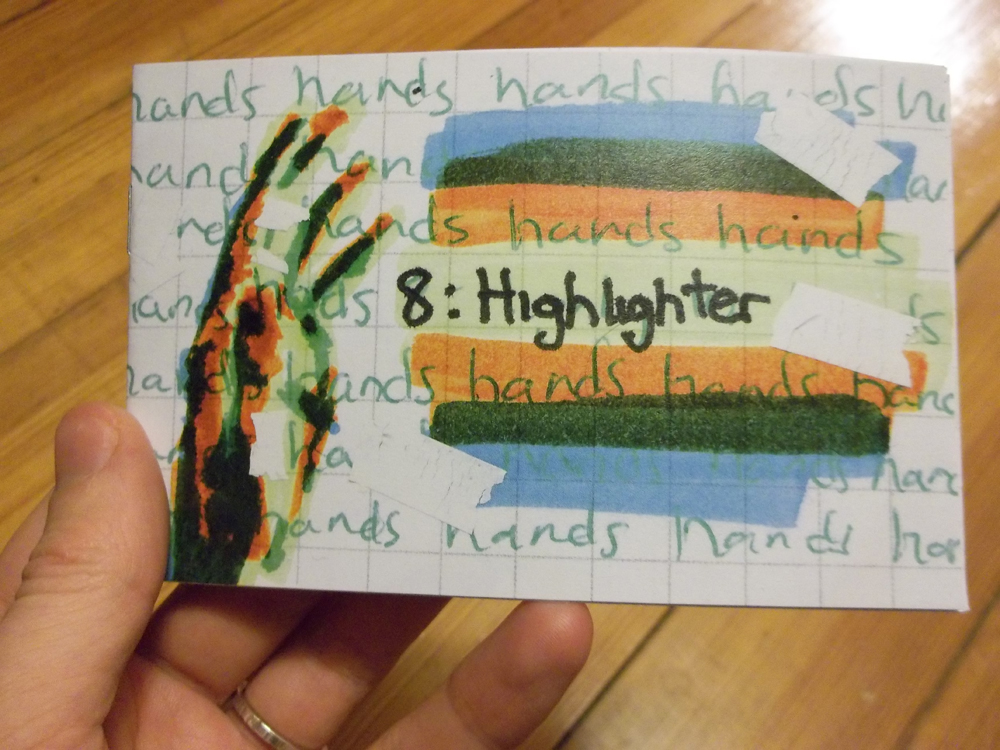 hands hands hands ha ds ha
hand han
hands hands hands
hands 8: Highlighter ds
hands hands hands hands
ha hands hand
hands hands hands ha